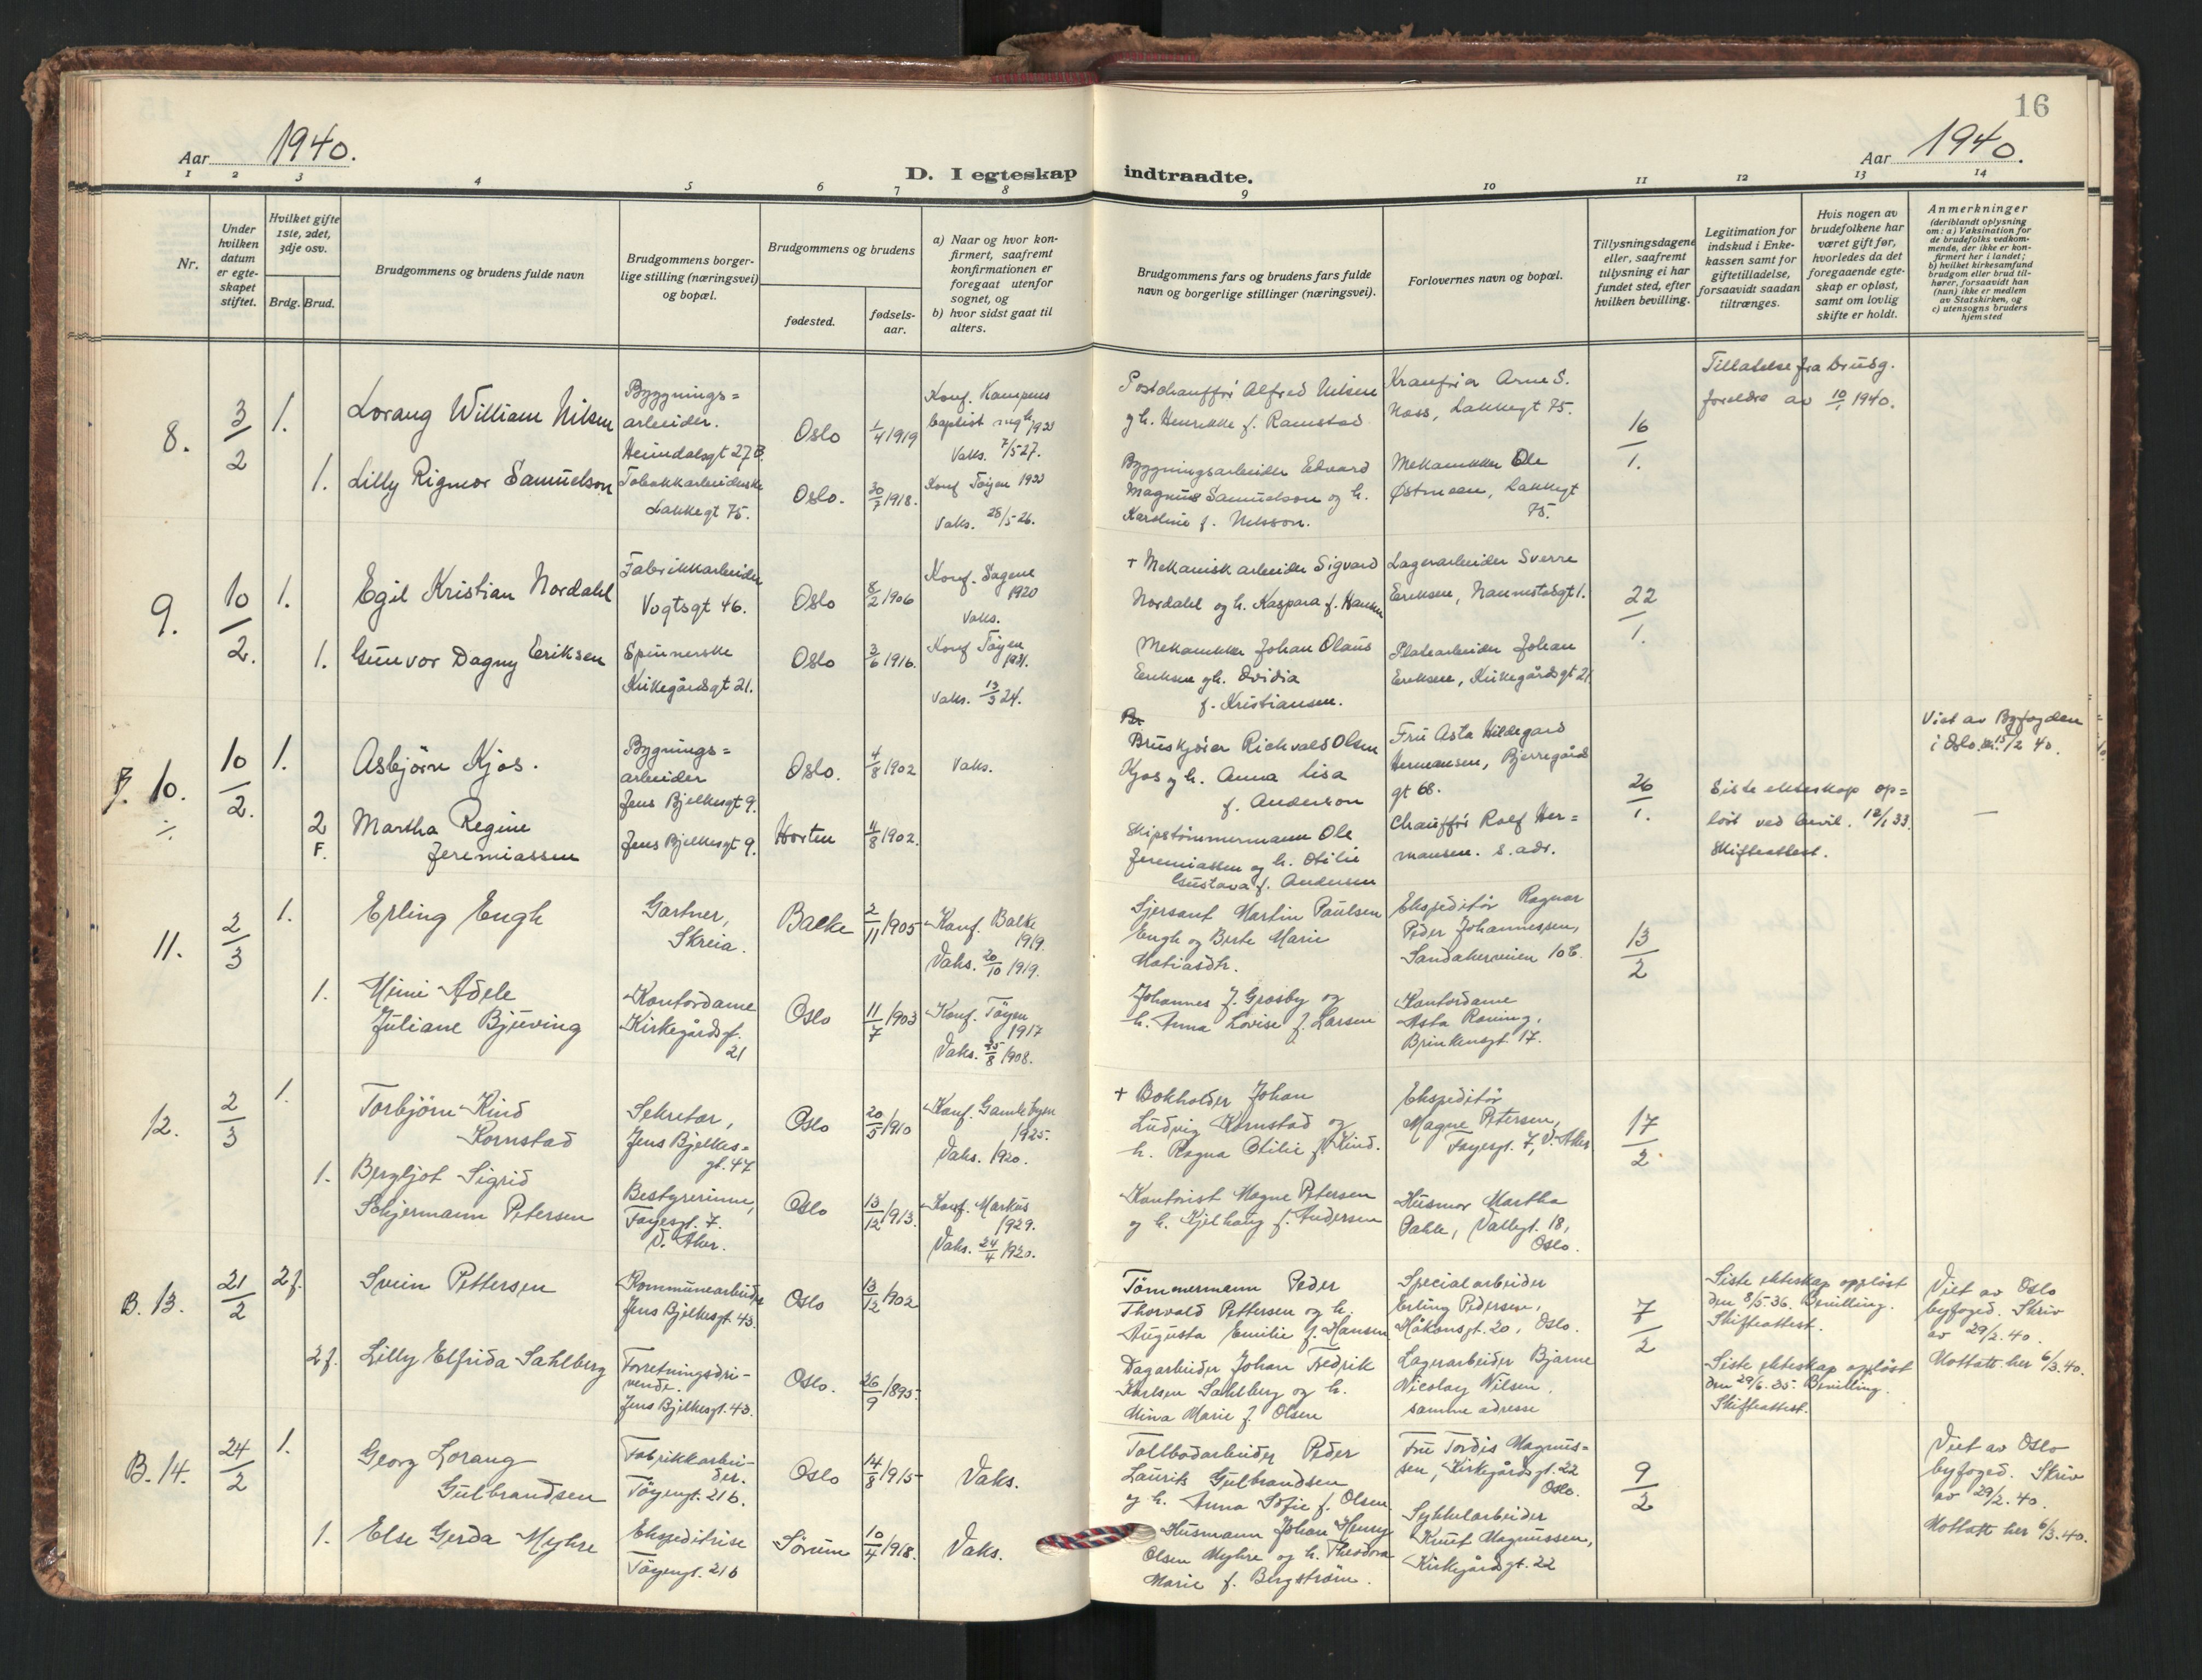 16
Aar 1940.
Aar 1940.
D. I egteskap indtraadte.
1 2 3 4 5 6 7 8 9 10 11 12 13 14
Nr.
Under
hvilken
datum
er egte-
skapet
stiftet.
Hvilket gifte
1ste, 2det,
3dje osv.
Brdg. Brud.
Brudgommens og brudens fulde navn
Brudgommens borger-
lige stilling (næringsvei)
og bopæl.
Brudgommens og brudens
fødested.
fødsels-
aar.
a) Naar og hvor kon-
firmert, saafremt
konfirmationen er
foregaat utenfor
sognet, og
b) hvor sidst gaat til
alters.
Brudgommens fars og brudens fars fulde
navn og borgerlige stillinger (næringsvei).
Forlovernes navn og bopæl.
Tillysningsdagene
eller, saafremt
tillysning ei har
fundet sted, efter
hvilken bevilling.
Legitimation for
indskud i Enke-
kassen samt for
giftetilladelse,
forsaavidt saadan
tiltrænges.
Hvis nogen av
brudefolkene har
været gift før,
hvorledes da det
foregaaende egte-
skap er opløst,
samt om lovlig
skifte er holdt.
Anmerkninger
(deriblandt oplysning
om: a) Vaksination for
de brudefolks vedkom-
mende, der ikke er kon-
firmert her i landet;
b) hvilket kirkesamfund
brudgom eller brud til-
hører, forsaavidt han
(hun) ikke er medlem
av Statskirken, og
c) utensogns bruders
hjemsted
8.
3/2
1.
Lorang William Nilsen
Byggnings=
arbeider.
Heimdalsgt 27 B.
Oslo
1/4 1919
Konf. Kampens
baptist
Vaks. 7/5 27.
Postchauffør Alfred Nilsen
og h. Henrikke f. Ramstad
Arne S.
Lakkegt 75.
16/1.
Tillatelse fra brudg.
foreldre av 10/1 1940.
1.
Lilly Rigmor Samuelson
Tobakkarbeiderske
Lakkegt 75.
Oslo.
30/7 1918.
Konf Tøyen 1933
Vaks. 28/5 26.
Byggningsarbeider Edvard
Magnus Samuelson og h.
Karoline f. Nilsson.
Mekaniker Ole
Østmoen, Lakkegt
75.
9.
10/2.
1.
Egil Kristian Nordahl
Fabrikkarbeider
Vogtsgt 46.
Oslo
8/2 1906
Konf. Sagene
1920
Vaks.
+ Mekanisk arbeider Sigvard
Nordahl og h. Kaspara f. Hansen
Lagerarbeider Sverre
Eriksen, Nannestadgt 1.
22/1.
1.
Gunvor Dagny Eriksen
Spinnerske
Kirkegårdsgt 21.
Oslo
3/6 1916.
Konf Tøyen
1931.
Vaks. 13/3 24.
Mekaniker Johan Olaus
Eriksen og h. Ovidia
f. Kristiansen.
Platearbeider Johan
Eriksen, Kirkegårdsgt 21.
B. 10.
÷
10/2.
1.
Asbjørn Kjos.
Bygnings=
arbeider
Jens Bjelkesgt 9.
Oslo.
4/8 1902
Vaks.
Br.
Bruskjører Richvald Olsen
Kjos og h. Anna Lisa
f. Anderson
Fru Asta Hildegard
Hermansen, Bjerregårds
gt 68.
26/1.
Viet av Byfogden
i Oslo 15/2 40.
2
F.
Martha Regine
Jeremiassen
Jens Bjelkesgt 9.
Horten
4/8 1902.
Skipstømmermann Ole
Jeremiassen og h. Otilie
Gustava f. Andersen
Chauffør Rolf Her=
mansen. s. adr.
Siste ekteskap op=
løst ved bevil. 12/1 33.
Skifteattest.
—
11.
2/3
1.
Erling Engh
Gartner,
Skreia.
Balke
2/11 1905
Konf. Balke
1919.
Vaks. 20/10 1919.
Sjersant Martin Paulsen
Engh og Berte Marie
Matiasdtr.
Ekspeditør Ragnar
Peder Johannessen,
Sandakerveien 10 b.
13/2
1.
Mimi Adele
Juliane Bjuving
Kontordame
Kirkegårdsgt.
21
Oslo
11/7 1903
Konf. Tøyen
1917
Vaks. 25/8 1908.
Johannes J. Grosby og
h. Anna Lovise f. Larsen
Kontordame
Asta Roning,
Brinkensgt. 17.
12.
2/3
1.
Torbjørn Kind
Kornstad
Sekretær,
Jens Bjelkes=
gt. 47
Oslo
20/5 1910
Konf. Gamlebyen
1925.
Vaks. 1920.
+ Bokholder Johan
Ludvig Kornstad og
h. Ragna Otilie f. Kind.
Ekspeditør
Magne Petersen,
Fayesgt. 7, V. Aker
17/2.
1.
Bergljot Sigrid
Schjermann Petersen
Bestyrerinne,
Fayesgt. 7.
V. Aker.
Oslo
13/12 1913.
Konf. Markus
1929.
Vaks. 24/4 1920.
Kontorist Magne Petersen
og h. Kjellaug f. Andersen
Husmor Martha
Dahle, Vallegt. 18,
Oslo.
B. 13.
21/2
2 f.
Svein Pettersen
Kommunearbeider
Jens Bjelkesgt. 43.
Oslo
13/12 1902
Tømmermann Peder
Thorvald Pettersen og h.
Augusta Emilie f. Hansen
Specialarbeider
Erling Pedersen,
Håkonsgt. 20, Oslo.
7/2
Siste ekteskap oppløst
den 8/5. 36. Bevilling.
Skifteattest.
Viet av Oslo
byfoged. Skriv
av 29/2. 40.
Mottatt her 6/3. 40.
2 f.
Lilly Elfrida Sahlberg
Forretningsdri-
vende.
Jens Bjelkesgt. 43.
Oslo.
26/9 1895
Dagarbeider Johan Fredrik
Karlsen Sahlberg og h.
Mina Marie f. Olsen
Lagerarbeider Bjarne
Nicolay Nilsen.
samme adresse
Siste ekteskap oppløst
den 29/6. 35. Bevilling.
Skifteattest.
B. 14.
24/2
1.
Georg Lorang
Gulbrandsen
Fabrikkarbei-
der.
Tøyengt. 21 b.
Oslo
14/8 1915
Vaks.
Tollbodarbeider Peder
Laurits Gulbrandsen
og h. Anna Sofie f. Olsen
Fru Tordis Magnus-
sen, Kirkegårdsgt. 22
Oslo.
9/2
Viet av Oslo
byfoged. Skriv
av 29/2. 40.
Mottatt her 6/3. 40.
1.
Else Gerda Myhre
Ekspeditrise
Tøyengt. 21 b
Sørum
10/4 1918.
Vaks.
Husmann Johan Henry
Olsen Myhre og h. Theodora
Marie f. Bergstrøm.
Sykkelarbeider
Knut Magnussen,
Kirkegårdsgt. 22